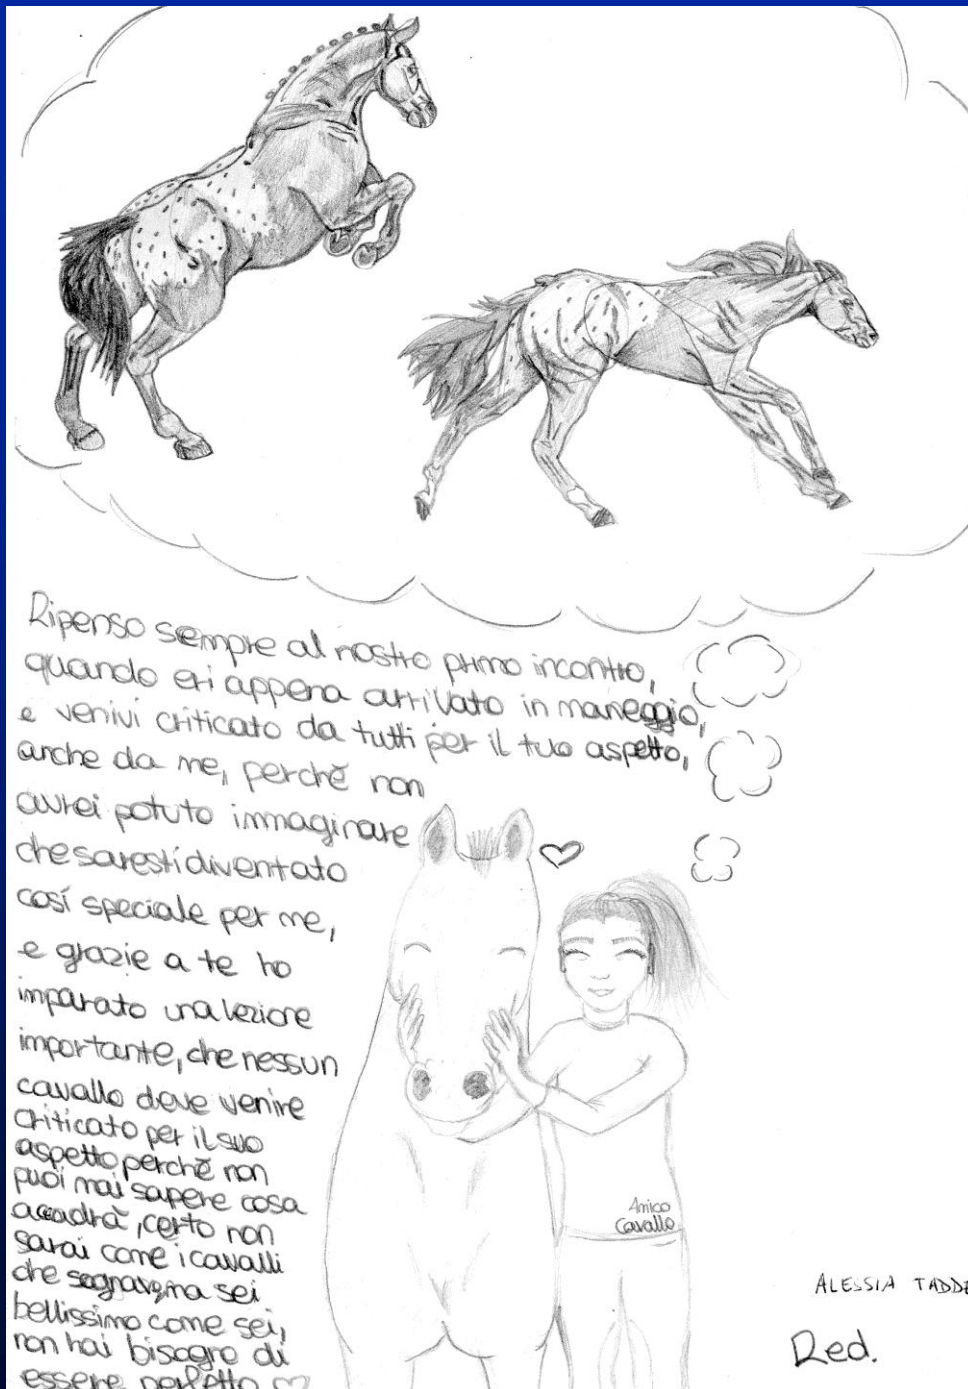 Ripenso sempre al nostro primo incontro,
quando eri appena arrivato in maneggio,
e venivi criticato da tutti per il tuo aspetto,
anche da me, perchè non
avrei potuto immaginare
che saresti diventato
così speciale per me,
e grazie a te ho
imparato una lezione
importante, che nessun
cavallo deve venire
criticato per il suo
aspetto perchè non
puoi mai sapere cosa
accadrà, certo non
sarai come i cavalli
che sognavo, ma sei
bellissimo come sei,
non hai bisogno di
essere perfetto ♡
Amico
Cavallo
ALESSIA TADDE
Red.